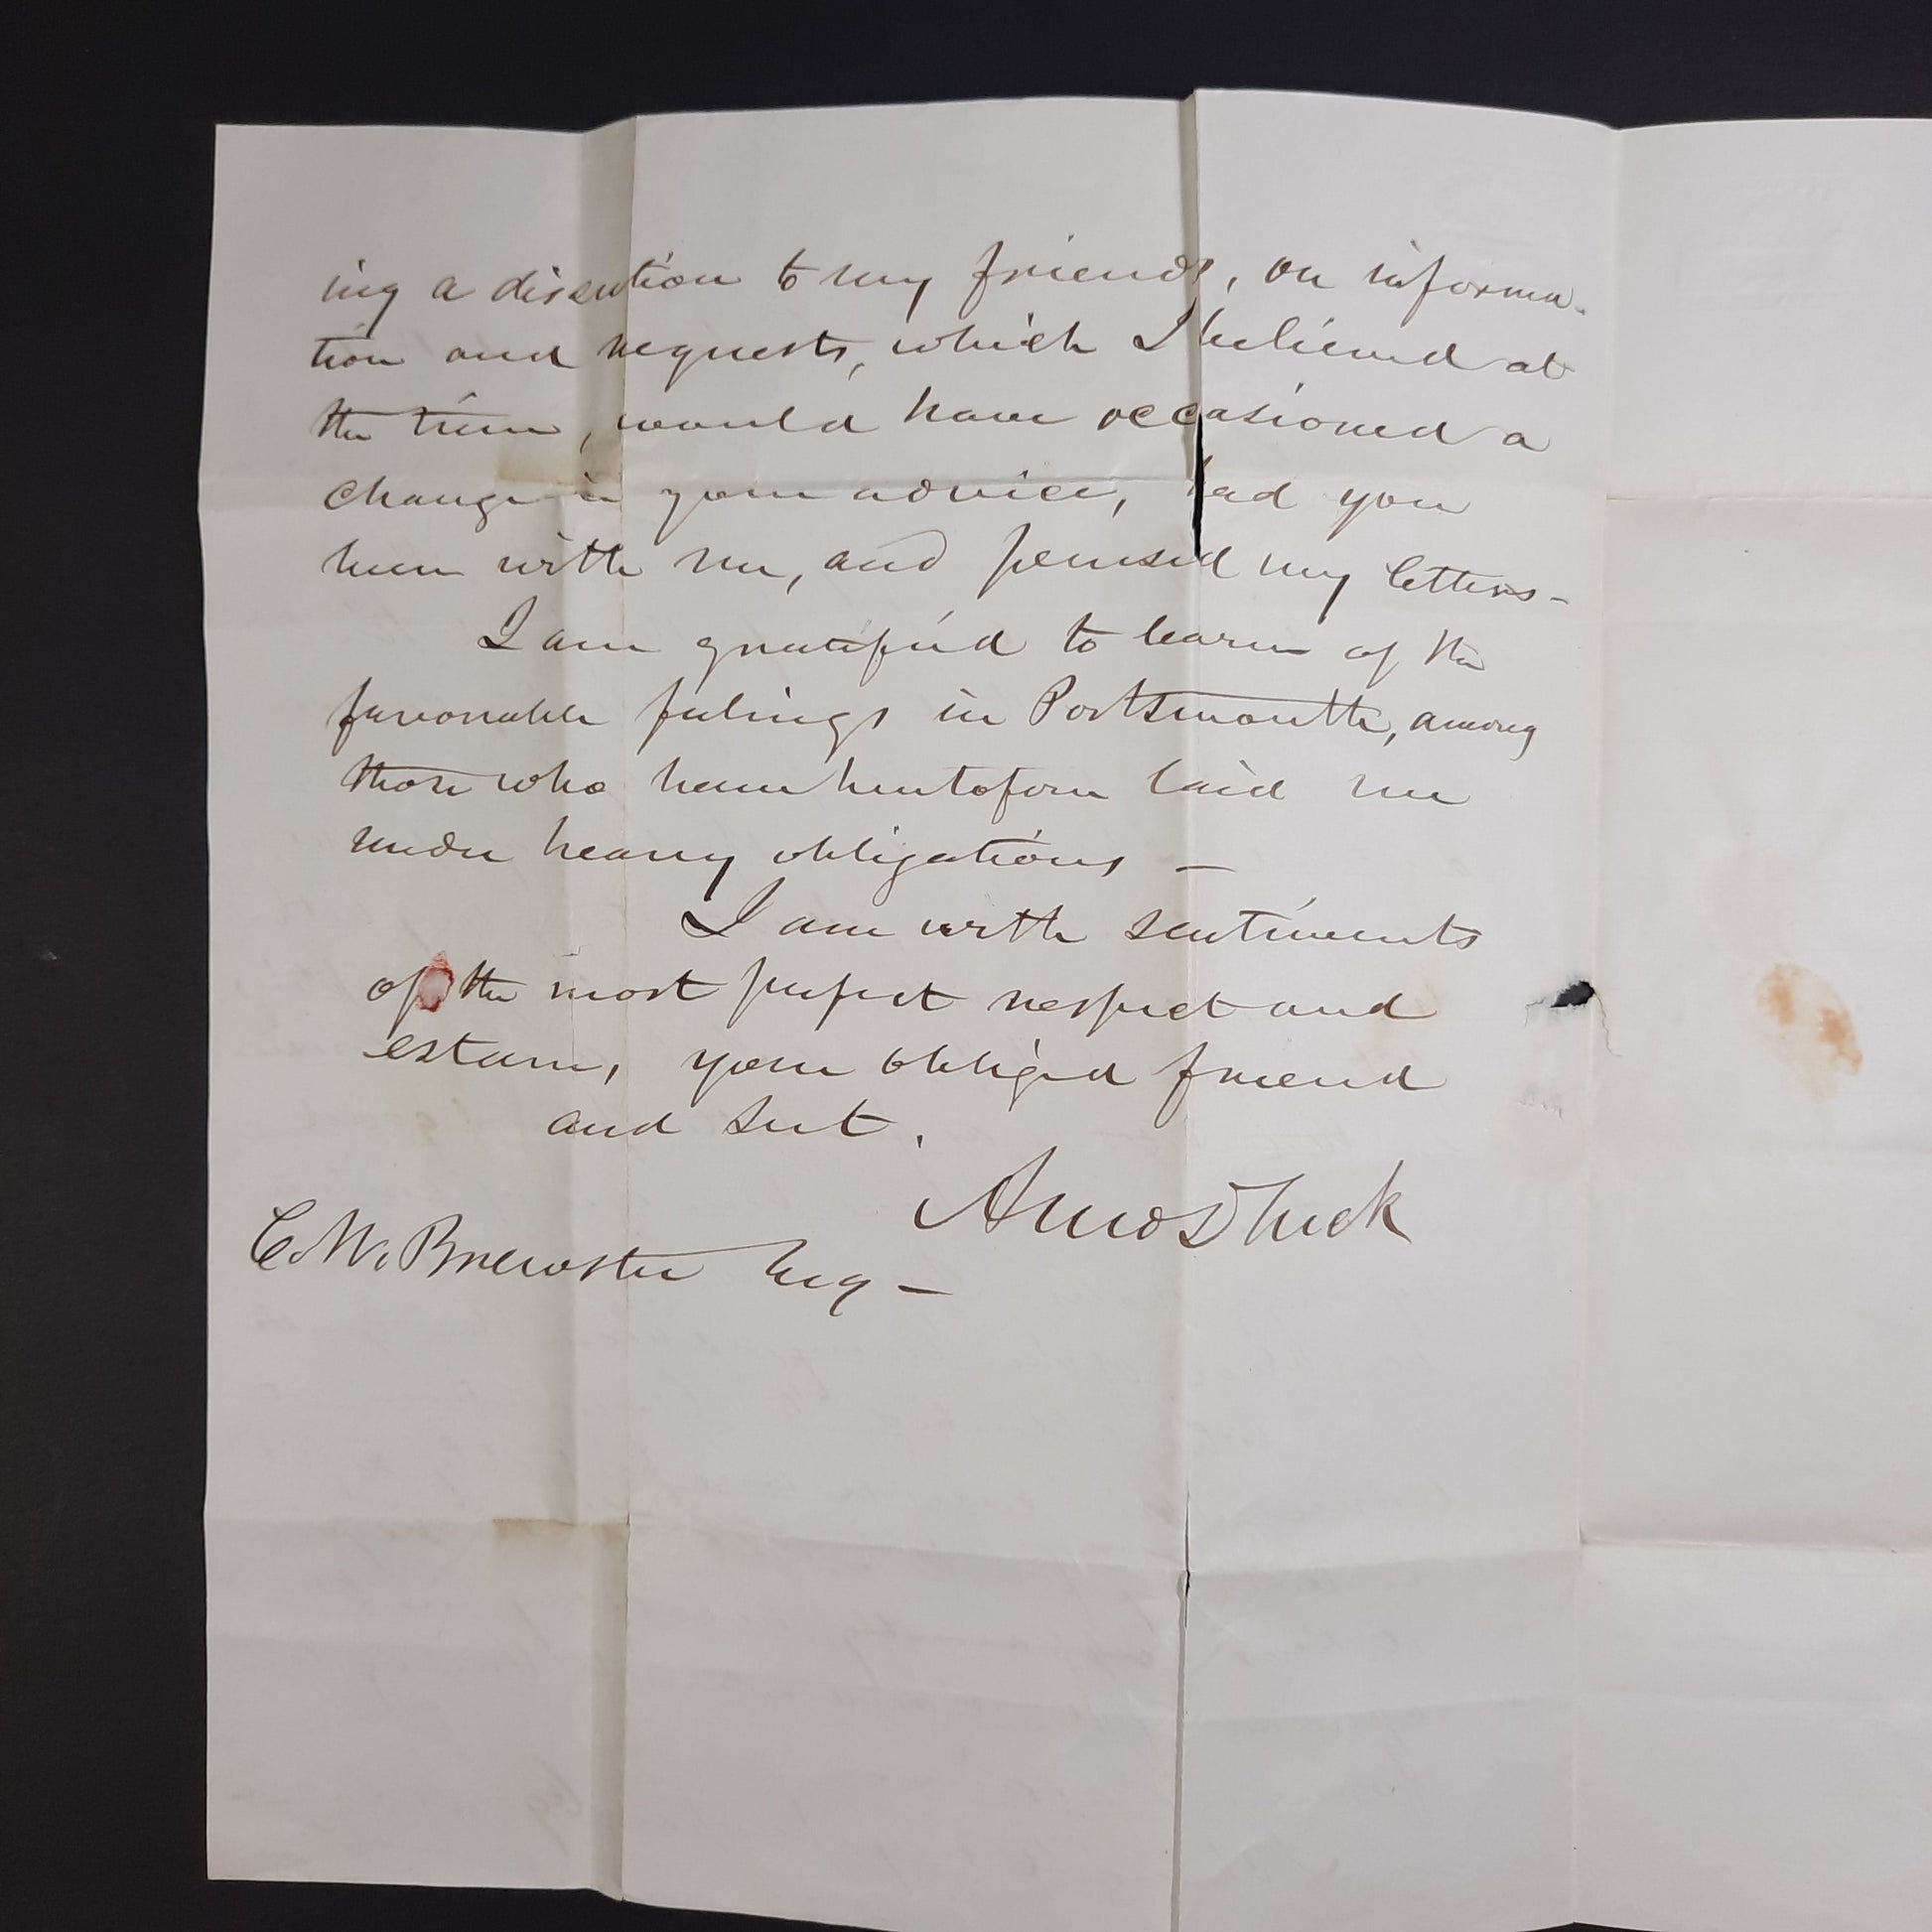 ing a discretion to my friends, on informa-
tion and requests, which I believed at
the time, would have occasioned a
change in your advice, had you
been with me, and perused my letters -
I am gratified to learn of the
favorable feelings in Portsmouth, among
those who have heretofore laid me
under heavy obligations -
I am with sentiments
of the most perfect respect and
esteem, your obliged friend
and Svt.
Amos Tuck
C. W. Brewster Esq -